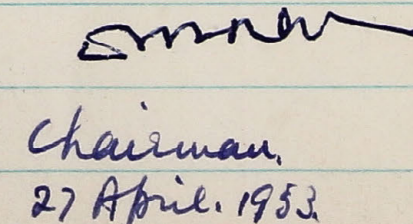 Chairman.
27 April. 1953.